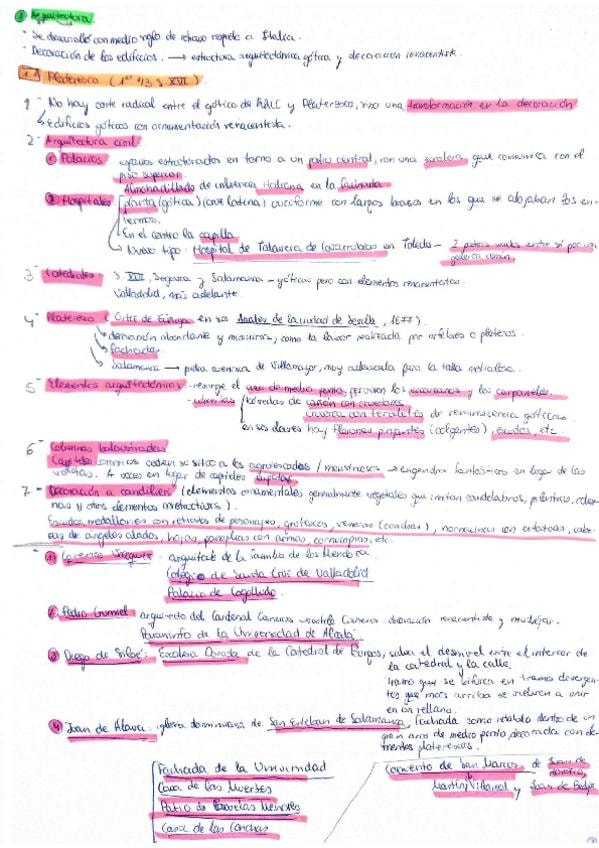 ① Arquitectura.
- Se desarrolló con medio siglo de retraso respecto a Italia.
- Decoración de los edificios. → estructura arquitectónica gótica y decoración renacentista.
1.1 Plateresco (1er 1/3 s. XVI).
1- No hay corte radical entre el gótico de RRCC y Plateresco, sino una transformación en la decoración
↳ edificios góticos con ornamentación renacentista.
2- Arquitectura civil
① Palacios espacios estructurados en torno a un patio central, con una escalera que comunica con el
piso superior.
Almohadillado de influencia italiana en la fachada
② Hospitales planta (gótica) (cruz latina) cruciforme con largos brazos en los que se alojaban los en-
fermos.
En el centro la capilla.
Nuevo tipo: Hospital de Talavera de en Toledo - 2 patios unidos entre sí por un
galería común.
3- Catedrales - S. XVI, Segovia y Salamanca - góticas pero con elementos renacentistas.
Valladolid, más adelante.
4- Plateresco (Ortiz de Zúñiga en sus Anales de la ciudad de Sevilla, 1677).
↳ decoración abundante y minuciosa, como la labor realizada por orfebres o plateros.
↳ fachadas
↳ Salamanca → piedra arenisca de Villamayor, muy adecuada para la talla
5- Elementos arquitectónicos - resurge el arco de medio punto, perviven los escarzanos y los carpaneles.
- cubiertas bóvedas de cañón con casetones
crucería con terceletes de reminiscencia gótica
en sus claves hay florones pinjantes (colgantes), escudos, etc
6- Columnas balaustradas
Capiteles corintios ceden su sitio a los agrutescados / monstruosos → engendros fantásticos en lugar de las
volutas. A veces en lugar de capiteles
7- Decoración a candilieri (elementos ornamentales generalmente vegetales que imitan candelabros, pilastras, colum-
nas y otros elementos estructurales).
Escudos, medallones con retratos de personajes, grutescos, veneras (conchas), hornacinas con estatuas, cabe-
zas de ángeles alados, hojas, panoplias con armas, cornucopias, etc.
① Lorenzo Vázquez: arquitecto de la familia de los Mendoza.
Colegio de Santa Cruz de Valladolid
Palacio de Cogolludo.
② Pedro Gumiel: arquitecto del Cardenal Cisneros Cisneros - decoración renacentista y mudéjar.
Paraninfo de la Universidad de Alcalá
③ Diego de Siloé: Escalera Dorada de la Catedral de Burgos, salva el desnivel entre el interior de
la catedral y la calle.
tramo que se bifurca en tramos divergen-
tes que más arriba se vuelven a unir
en un rellano.
④ Juan de Álava: iglesia dominicana de San Esteban de Salamanca, fachada como retablo dentro de un
gran arco de medio punto, decorada con ele-
mentos platerescos.
Fachada de la Universidad
Casa de las Muertes
Patio de Escuelas Menores
Casa de las Conchas
Convento de San Marcos de Juan de
Martín Villarreal y Juan de Badajoz